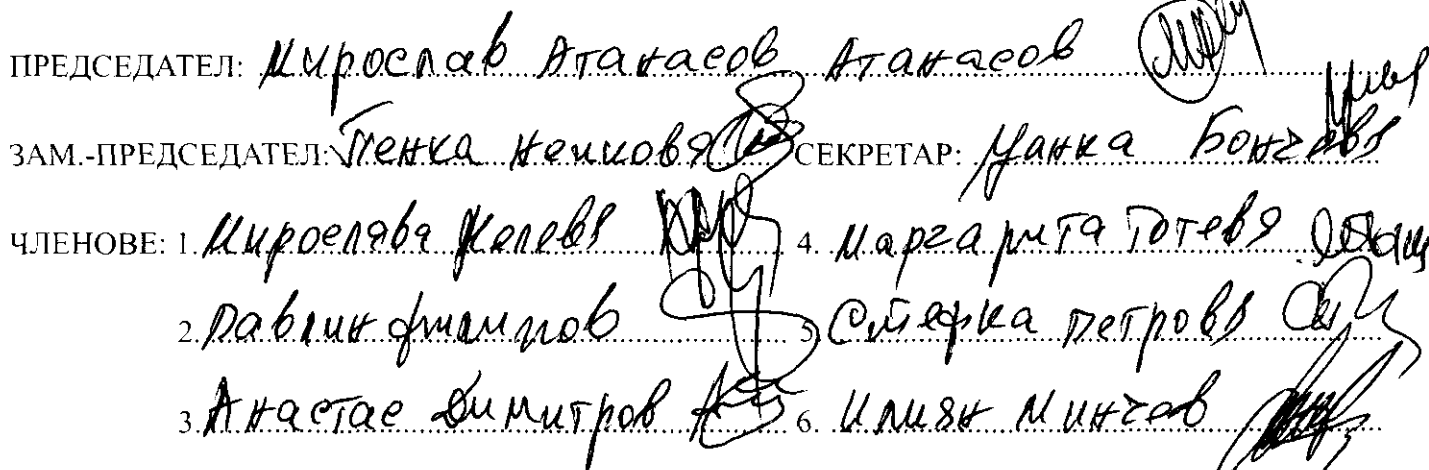 ПРЕДСЕДАТЕЛ: Мирослав Атанасов Атанасов
ЗАМ.-ПРЕДСЕДАТЕЛ: Пенка Ненкова СЕКРЕТАР: Цанка Бончева
ЧЛЕНОВЕ: 1. Мирослава Желева 4. Маргарита Тотева
2. Павлин Филипов 5. Стефка Петрова
3. Анастас Димитров 6. Илиян Минчев